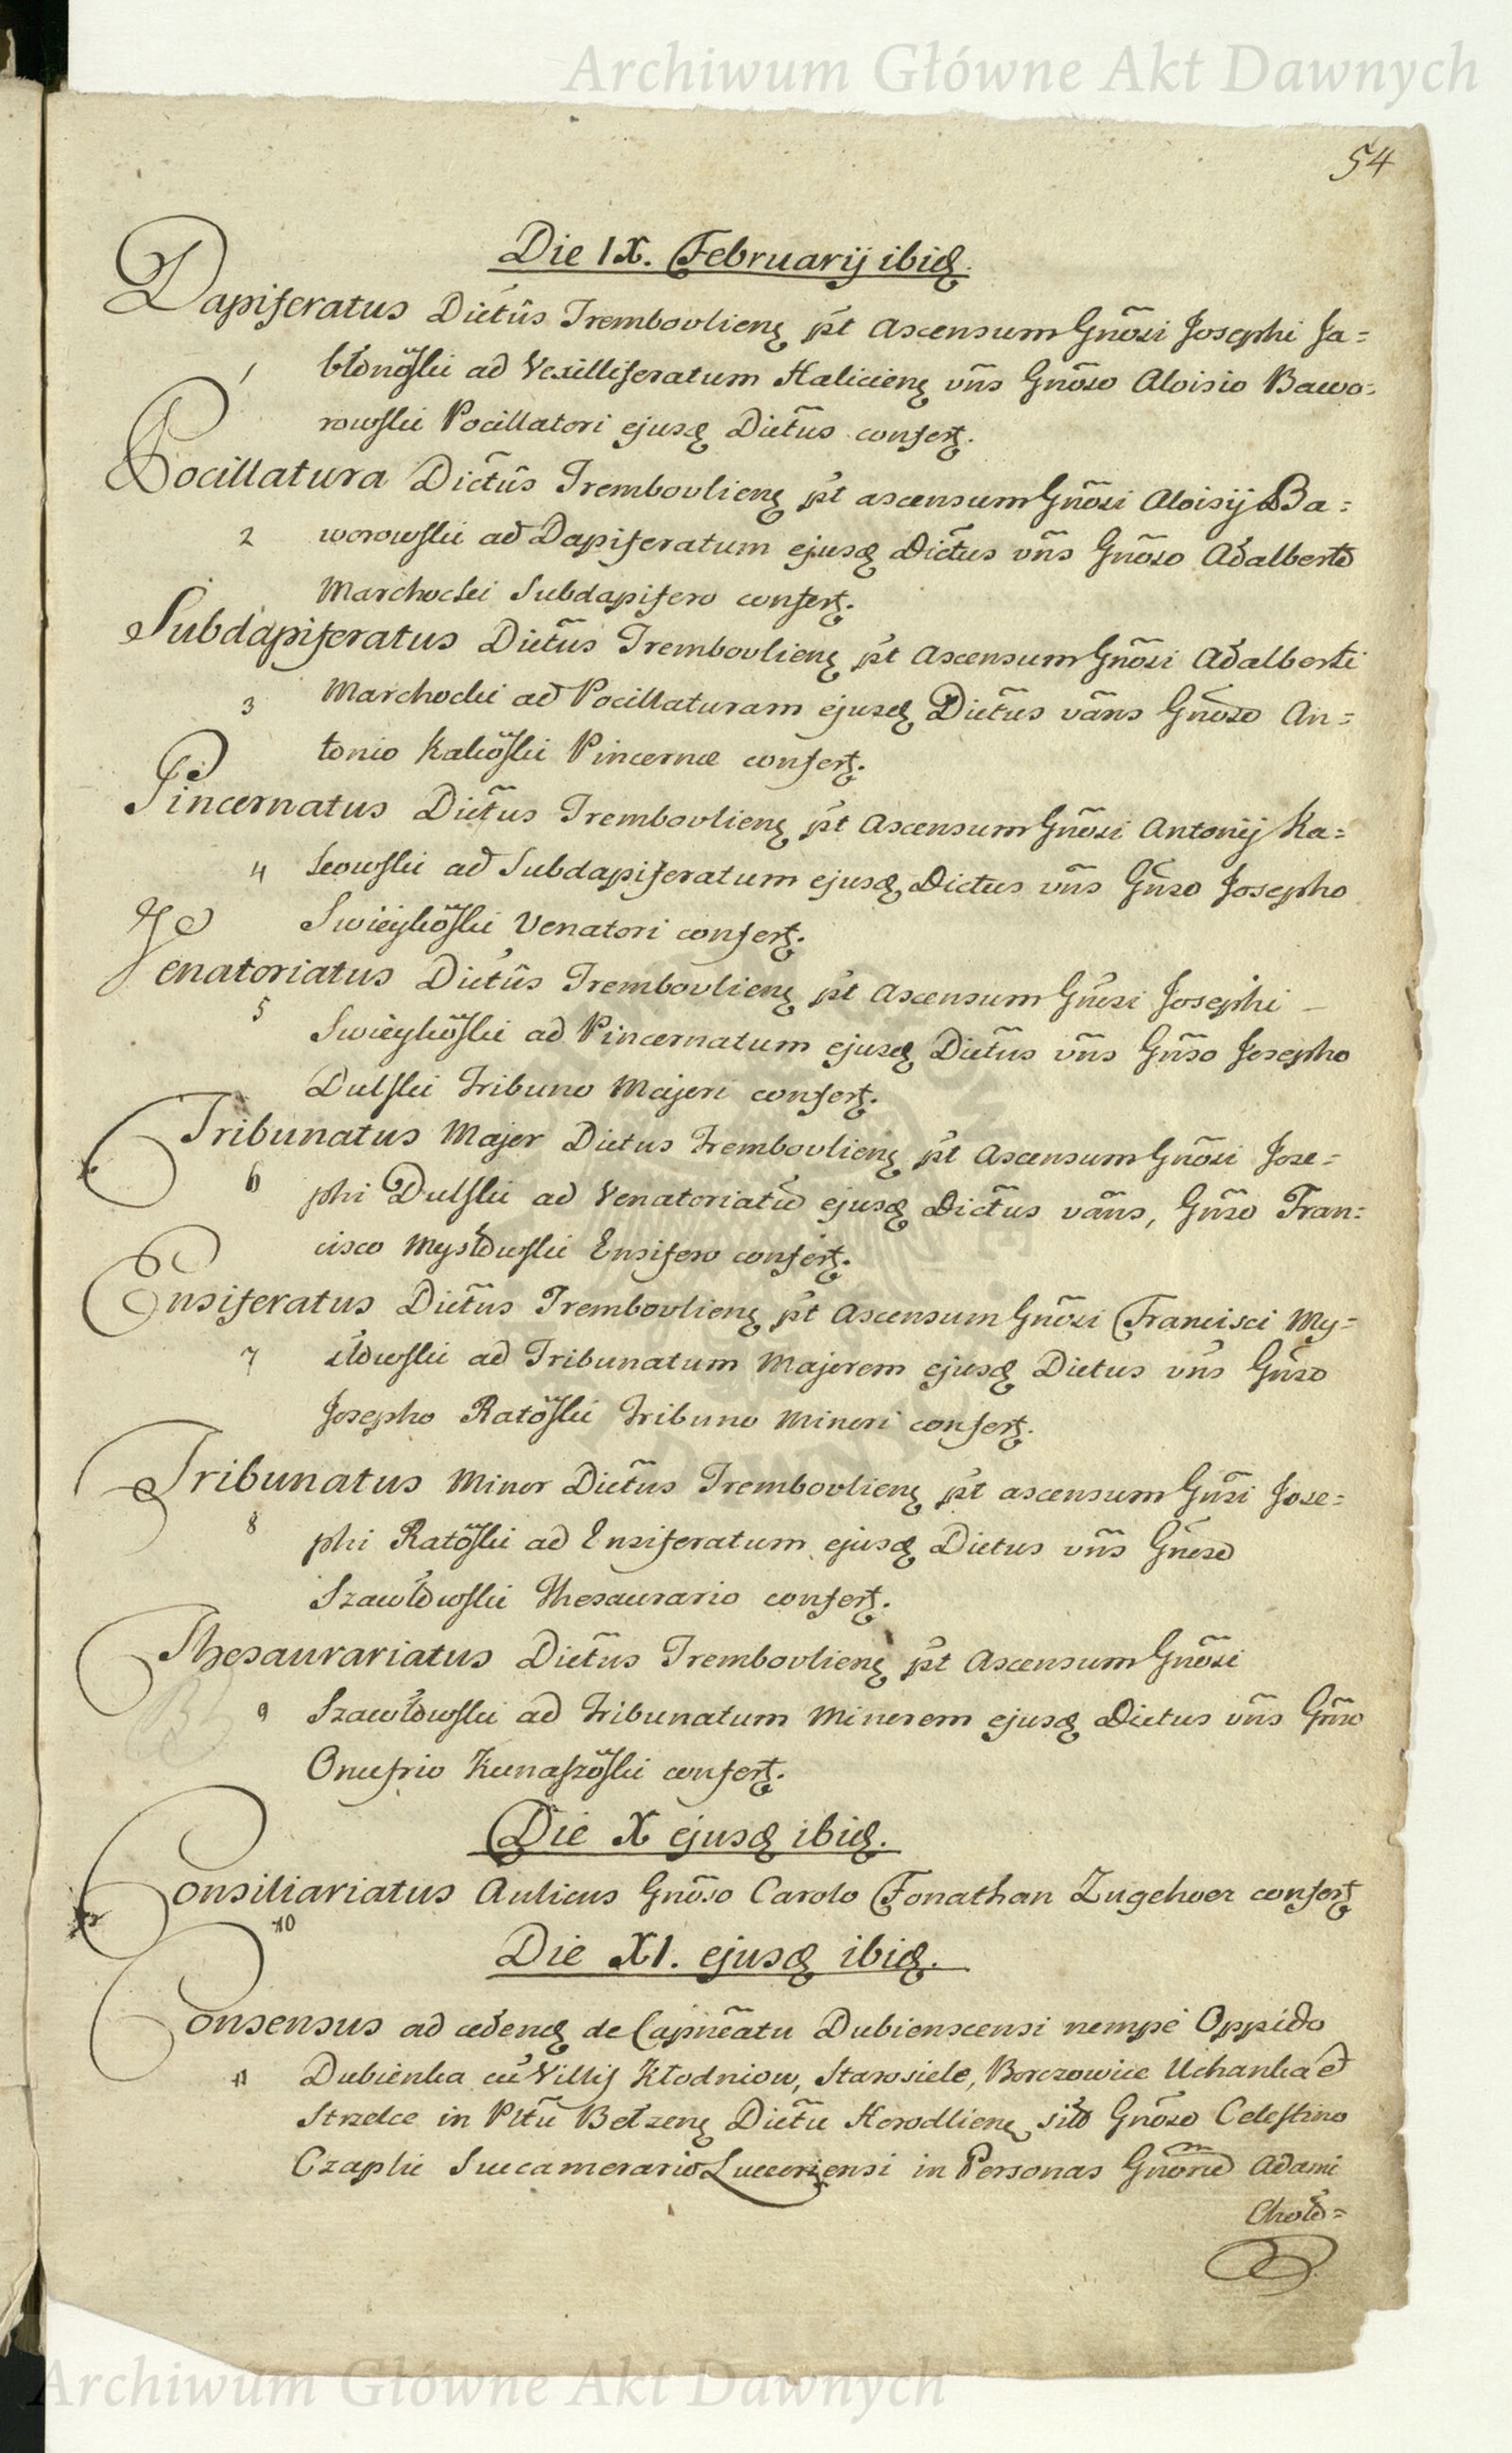 Archiwum Główne Akt Dawnych
54
Die IX. Februarij ibid.
Dapiferatus Dictus Tremboulienę pt Ascensum Gnosi Josephi Ja=
1 błonoskii ad Vexilliferatum Halicienę vñs Gnoso Aloisio Bawo=
rowskii Pocillatori ejusd Dictus confert.
Pocillatura Dictus Tremboulienę pt ascensum Gnosi Aloisij Ba=
2 worowskii ad Dapiferatum ejusd Dictus vñs Gnoso Adalberto
Marchocki Subdapifero confert.
Subdapiferatus Dictus Tremboulienę pt Ascensum Gnosi Adalberti
3 Marchockii ad Pocillaturam ejusd Dictus vãns Gnoso An=
tonio Kalioskii Pincernæ confert.
Pincernatus Dictus Tremboulienę pt Ascensum Gnosi Antonij Ka=
4 ad Subdapiferatum ejusd Dictus vñs Gnso Josepho
Venatori confert.
Venatoriatus Dictus Tremboulienę pt Ascensum Gnosi Josephi
5 ad Pincernatum ejusd Dictus vñs Gnso Josepho
Dulskii Tribuno Majori confert.
Tribunatus Major Dictus Tremboulienę pt Ascensum Gnosi Jose=
6 phi Dulskii ad Venatoriatũ ejusd Dictus vãns, Gnso Fran=
cisco Mysłowskii Ensifero confert.
Ensiferatus Dictus Tremboulienę pt Ascensum Gnosi Francisci My=
7 słowskii ad Tribunatum Majorem ejusd Dictus vñs Gnso
Josepho Ratoskii Tribuno Minori confert.
Tribunatus Minor Dictus Tremboulienę pt ascensum Gnsi Jose=
8 phi Ratoskii ad Ensiferatum ejusd Dictus vñs Gnoso
Szawłowskii Thesaurario confert.
Thesaurariatus Dictus Tremboulienę pt Ascensum Gnosi
9 Szawłowskii ad Tribunatum Minorem ejusd Dictus vñs Gnso
Onufrio Kunaszoskii confert.
Die X ejusd ibid.
Consiliariatus Aulicus Gnoso Carolo Jonathan Zugehoer confert
10
Die XI. ejusd ibid.
Consensus ad cedend de Capneatu Dubienscensi nempe Oppido
11 Dubienka cũ Villis Kłodniow, Starosiele, Borczowice Uchanka et
Strzelce in Pltũ Bełzenę Dictũ Horodlienę sito Gnoso Celestino
Czaplic Succamerario Luceoriensi in Personas Gnorũ Adami
Choło=
Archiwum Główne Akt Dawnych